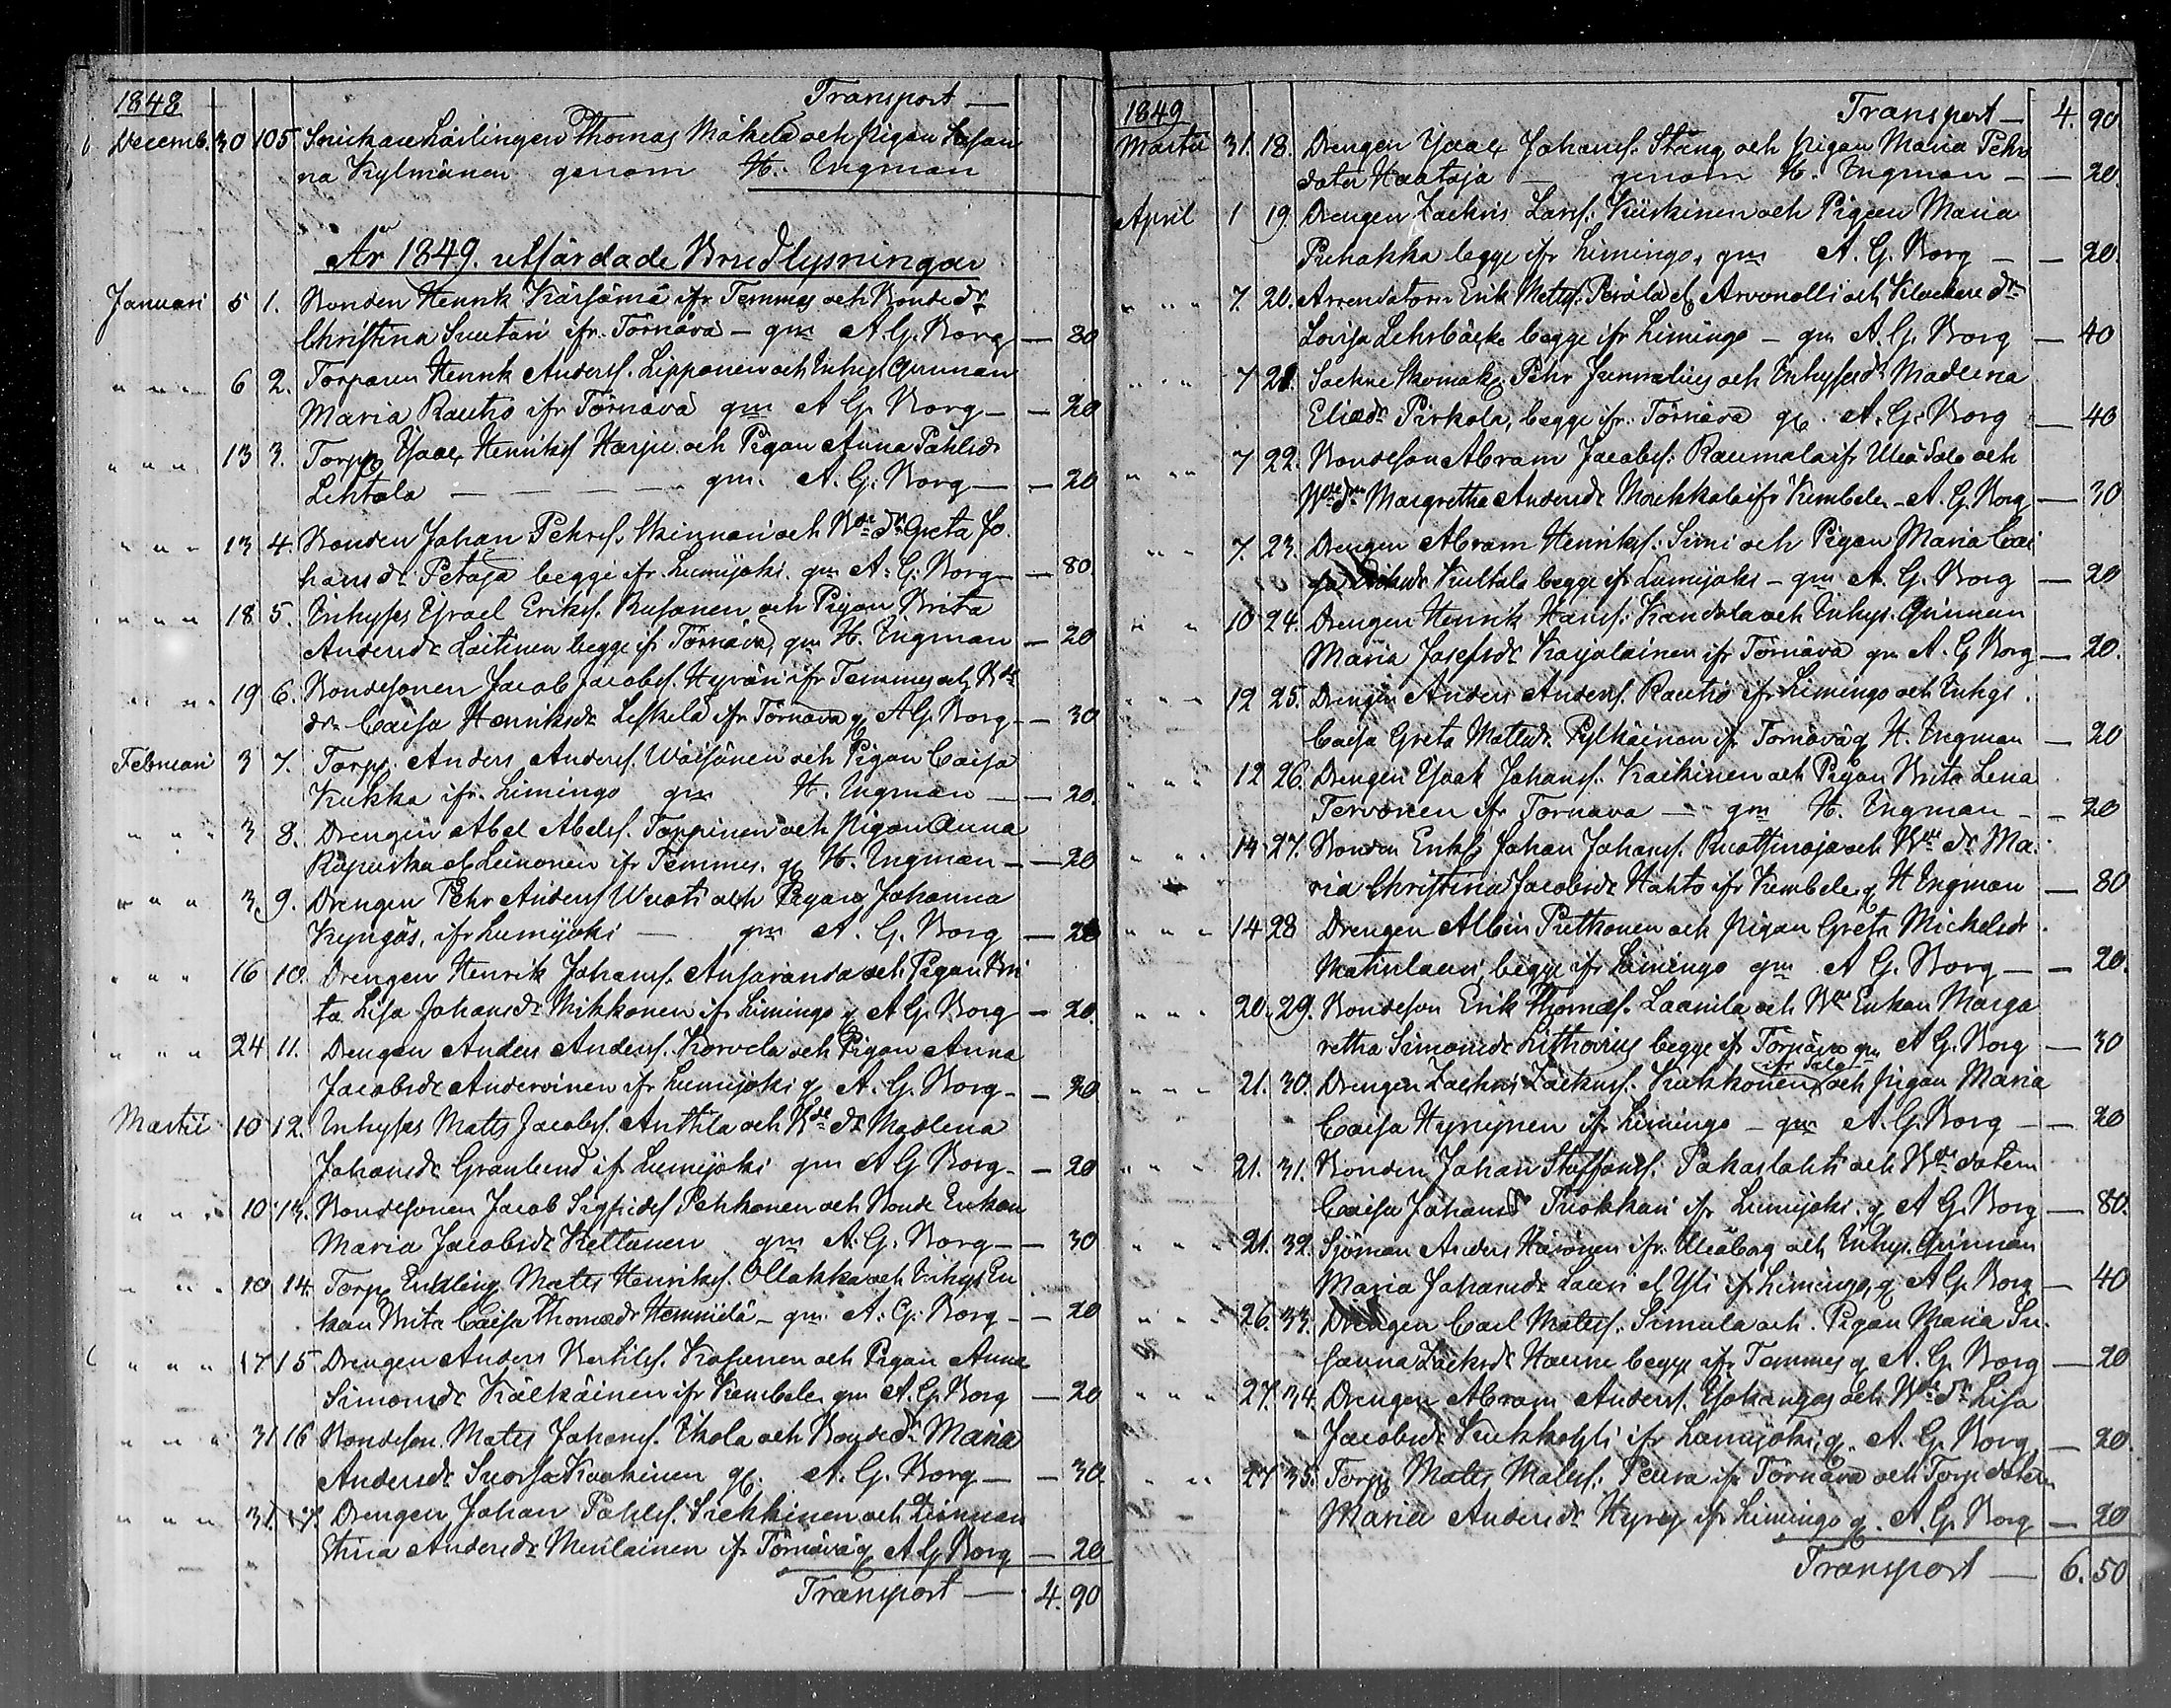 1848 Transport —
Decemb. 30 105 Snickare Lärlingen Thomas Mäkelä och Pigan Susan
na Kylmänen genom H. Ingman
År 1849. utfärdade Brudlysningar
Januari 5 1. Bonden Henrik Kärsämä ifr. Temmes och Bonde dr
Christina Suutari ifr. Törnävä — gm A. G. Borg — 80
" " " 6 2. Torparen Henrik Anderss. Lipponen och Inhys Qvinnan
Maria Rautio ifr Törnävä gm A G. Borg — — 20
" " " 13 3. Torp. Isaac Henrikss Harju och Pigan Anna Påhlsdr
Lehtola — — — — gm. A. G. Borg — — 20
" " " 13 4. Bonden Johan Pehrss. Skinnari och Bde dr Greta Jo
hansdr. Petäjä begge ifr Lumijoki. gm A. G. Borg — — 80.
" " " 18 5. Inhyses Israel Erikss. Rusanen och Pigan Brita
Andersdr Laitinen begge ifr Törnävä, gm H. Ingman — 20
" " " 19 6. Bondesonen Jacob Jacobss. Hyväri ifr Temmes och Bde
dr. Caisa Henriksdr Leskelä ifr Törnävä g A G. Borg — — 30
Februari 3 7. Torp. Anders Anderss. Wäisänen och Pigan Caisa
Kukka ifr. Limingo gm H. Ingman — — 20.
" " " 3 8. Drengen Abel Abelss. Toppinen och Pigan Anna
el Leinonen ifr Temmes. g H. Ingman — — 20
" " " 3. 9. Drengen Pehr Anderss Wuoti och Pigan Johanna
Kyngäs, ifr Lumijoki — gm A. G. Borg — 20
" " " 16 10. Drengen Henrik Johanss. Ansaranta och Pigan Bri
ta Lisa Johansdr Mikkonen ifr Limingo g A G. Borg — 20.
" " " 24 11. Drengen Anders Anderss. Korvela och Pigan Anna
Jacobsdr Andervinen ifr Lumijoki g A. G. Borg — — 20
Martii 10 12. Inhyses Matts Jacobss. Anttila och Bde dr Madlena
Johansdr Granlund ifr Lumijoki gm A G Borg — — 20
" " " 10 13. Bondesonen Jacob Sigfridss Pehkonen och Bonde Enkan
Maria Jacobsdr Keltanen gm A. G. Borg — — 30
" " " 10 14. Torp Enkling Matts Henrikss. Ollakka och Inhys En
kan Brita Caisa Thomædr Hemmilä — gm A. G. Borg — — 20
" " " 17 15. Drengen Anders Bertilss. Kosunen och Pigan Anna
Simonsdr Kälkäinen ifr Kembele gm A. G. Borg — 20
" " " 31 16 Bondeson Matts Johanss. Ikola och Bonde dr Maria
Andersdr Suorsa Kaakinen g. A. G. Borg — — 30.
" " " 31. 17. Drengen Johan Påhlss. Siekkinen och Qvinnan
Stina Andersdr Meriläinen ifr Törnävä g A G Borg — 20
Transport — 4. 90
1849 Transport — 4. 90
Martii 31. 18. Drengen Isaac Johanss. Stång och Pigan Maria Pehrs
doter Haataja — genom H. Ingman — — 20.
April 1 19. Drengen Zachris Larss. Kuiskinen och Pigan Maria
Puhakka begge ifr Limingo, gm A. G. Borg — — 20.
" " " 7. 20. Arrendatorn Erik Matss. Perälä el Arvonolli och Klockare dr
Lovisa Lehrbäck begge ifr Limingo — gm A. G. Borg — 40
" " " 7 21. Sockne Skomak. Pehr Junnelius och Inhysesdr Madlena
Eliædr Pirkola, begge ifr. Törnävä g. A. G. Borg — 40
" " " 7 22. Bondeson Abram Jacobss. Raumala ifr Uleå Salo och
Bde dr Margretha Andersdr Moukkala ifr Kembele — A. G. Borg — 30
" " 7. 23. Drengen Abram Henrikss. Simi och Pigan Maria Cai
sa Kultala begge ifr Lumijoki — gm A. G. Borg — 20
" " 10 24. Drengen Henrik Hanss. Kandola och Inhys. Qvinnan
Maria Josefsdr Karjalainen ifr Törnävä gm A. G. Borg — 20.
" " " 12 25. Drengen Anders Anderss. Rautio ifr Limingo och Inhys.
Caisa Greta Mattsdr. Pylkäinen ifr Törnävä g H. Ingman — 20
" " " 12 26. Drengen Isaak Johanss. Kaikinen och Pigan Brita Lena
Tervonen ifr Tornava — gm H. Ingman — — 20
" " " 14 27. Bonden Enkl. Johan Johanss. Ruottinoja och Bde dr Ma-
ria Christina Jacobsdr Hahto ifr Kembele g H Ingman — 80
" " " 14 28 Drengen Albin Putkonen och Pigan Greta Mickelsdr.
Matinlauri begge ifr Limingo gm A G. Borg — — 20.
" " " 20. 29. Bondeson Erik Thomæs. Laanila och Bde Enkan Marga
retha Simonsdr Lithovius begge ifr Törnävä gm A G. Borg — 30
ifr Salo
" " " 21. 30. Drengen Zachris Zachriss. Kukkonen, och Pigan Maria
Caisa Hyrynen ifr Limingo — gm A. G. Borg — — 20
" " " 21. 31. Bonden Johan Staffanss. Pakaslahti och Bde dotern
Caisa Johansdr Ruokkari ifr Lumijoki. g A G. Borg — 80.
" " " 21. 32. Sjöman Anders Häivönen ifr. Uleåborg och Inhys. Qvinnan
Maria Johansdr Lauri el Yli ifr Limingo, g A G. Borg — 40
" " " 26. 33. Drengen Carl Matss. Simula och Pigan Maria Su-
sanna Zachrsdr Hauru begge ifr Temmes g A. G. Borg — 20
" " " 27. 34. Drengen Abram Anderss. Ylikangas och Bde dr Lisa
Jacobsdr Kukkohyli ifr Lumijoki, g. A. G. Borg — 20.
" " " 27 35. Torp. Matts Matss. Peura ifr Törnävä och Torp dotern
Maria Andersdr Hyry ifr Limingo g. A. G. Borg — 20
Transport — 6. 50